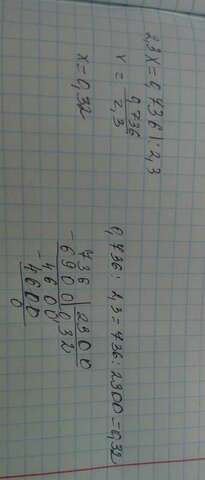 2,3x = 0,736 | : 2,3
x = 0,736 / 2,3
x = 0,32
0,736 : 2,3 = 736 : 2300 = 0,32
736 | 2300
- 6900 | 0,32
- 4600
4600
0